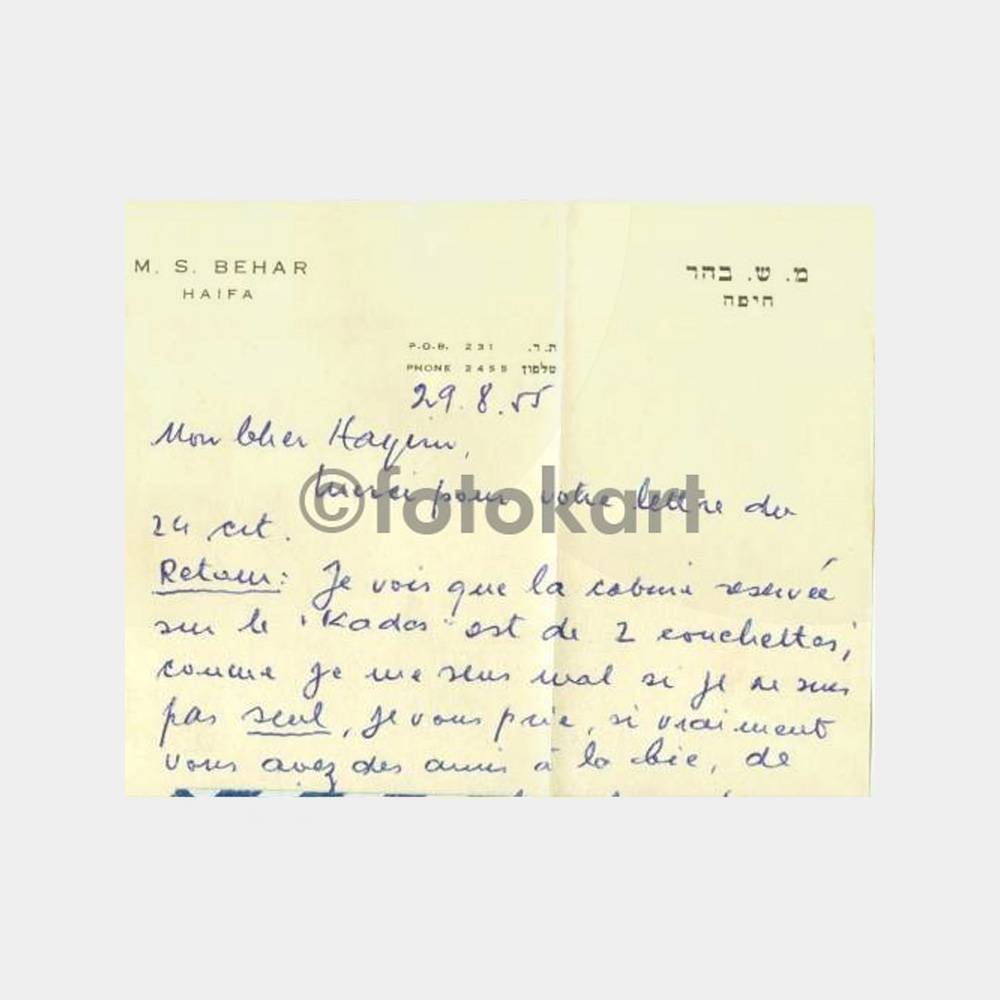 M. S. BEHAR
HAIFA
מ. ש. בהר
חיפה
P.O.B. 231 ת.ד.
PHONE 2455 טלפון
29.8.55
Mon cher Hayim,
Merci pour votre lettre du
24 crt.
Retour: Je vois que la cabine reservée
sur le "Kadès" est de 2 couchettes;
comme je me sens mal si je ne suis
pas seul, je vous prie, si vraiment
vous avez des amis à la Cie, de
©fotokart